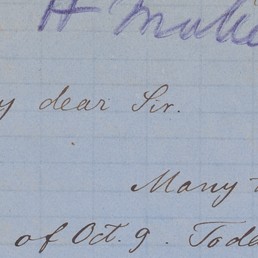 H
y dear Sir.
Many
of Oct. 9. Toda